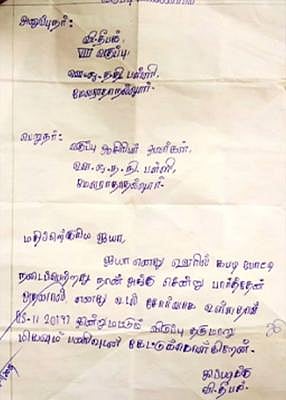 அனுப்புநர்:
வி.தீபக்,
VIII வகுப்பு,
ஊ.ஒ.ந.நி பள்ளி,
மேலராதாநல்லூர்.
பெறுநர்:
வகுப்பு ஆசிரியர் அவர்கள்,
ஊ.ஒ.ந.நி.பள்ளி,
மேலராதாநல்லூர்.
மதிப்பிற்குரிய ஐயா,
ஐயா எனது ஊரில் கபடி போட்டி
நடைபெற்றது நான் அங்கு சென்று பார்த்தேன்
அதனால் எனது உடல் சோர்வாக உள்ளதால்
15-11-2019 இன்று மட்டும் விடுப்பு தருமாறு
மிகவும் பணிவுடன் கேட்டுக்கொள்கிறேன்.
இப்படிக்கு
வி.தீபக்.